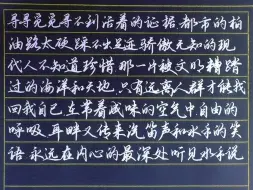 寻寻觅觅寻不到活着的证据 都市的柏
油路太硬 踩不出足迹 骄傲无知的现
代人 不知道珍惜 那一片被文明糟蹋
过的海洋和天地 只有远离人群才能找
回我自己 在带着咸味的空气中自由的
呼吸 耳畔又传来汽笛声和水手的笑
语 永远在内心的最深处听见水手说